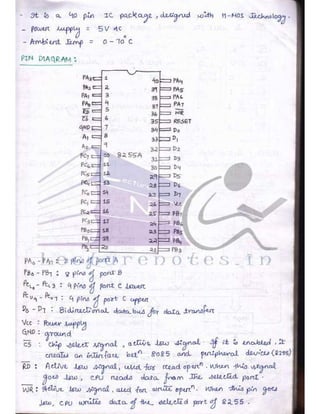 - It is a 40 pin IC package, designed with N-MOS Technology.
- Power supply = 5V DC
- Ambient Temp = 0-70°C
PIN DIAGRAM:
PA3 1 40 PA4
PA2 2 39 PA5
PA1 3 38 PA6
PA0 4 37 PA7
RD 5 36 WR
CS 6 35 RESET
GND 7 34 D0
A1 8 33 D1
A0 9 32 D2
PC7 10 8255A 31 D3
PC6 11 30 D4
PC5 12 29 D5
PC4 13 28 D6
PC0 14 27 D7
PC1 15 26 Vcc
PC2 16 25 PB7
PC3 17 24 PB6
PB0 18 23 PB5
PB1 19 22 PB4
PB2 20 21 PB3
PA0 - PA7 : 8 pins of port A
PB0 - PB7 : 8 pins of port B
PC0 - PC3 : 4 pins of port C lower
PC4 - PC7 : 4 pins of port C upper
D0 - D7 : Bidirectional data bus for data transfer
Vcc : Power supply
GND : ground
CS : chip select signal, active low signal. If it is enabled, it
creates an interface betn 8085 and peripheral devices (8255)
RD : Active low signal, used for read opern. when this signal
goes low, CPU reads data from the selected port.
WR : Active low signal, used for write opern. when this pin goes
low, CPU writes data of the selected port of 8255.